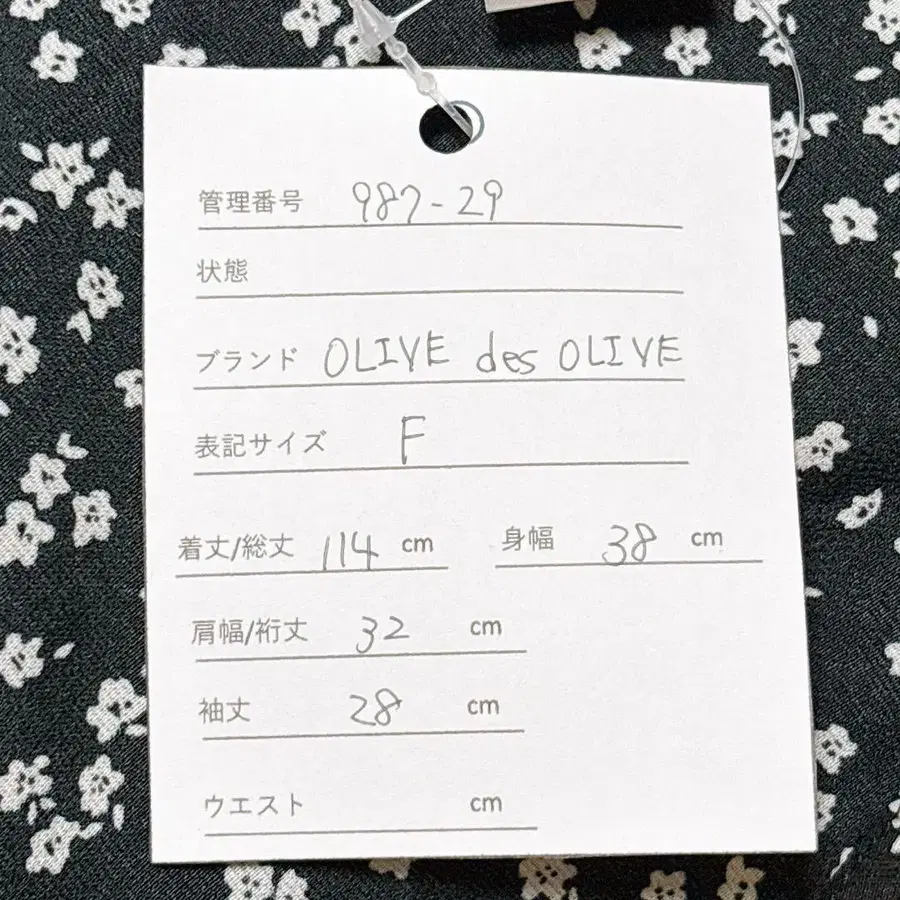 管理番号 987-29
状態
ブランド OLIVE des OLIVE
表記サイズ F
着丈/総丈 114 cm 身幅 38 cm
肩幅/裄丈 32 cm
袖丈 28 cm
ウエスト cm